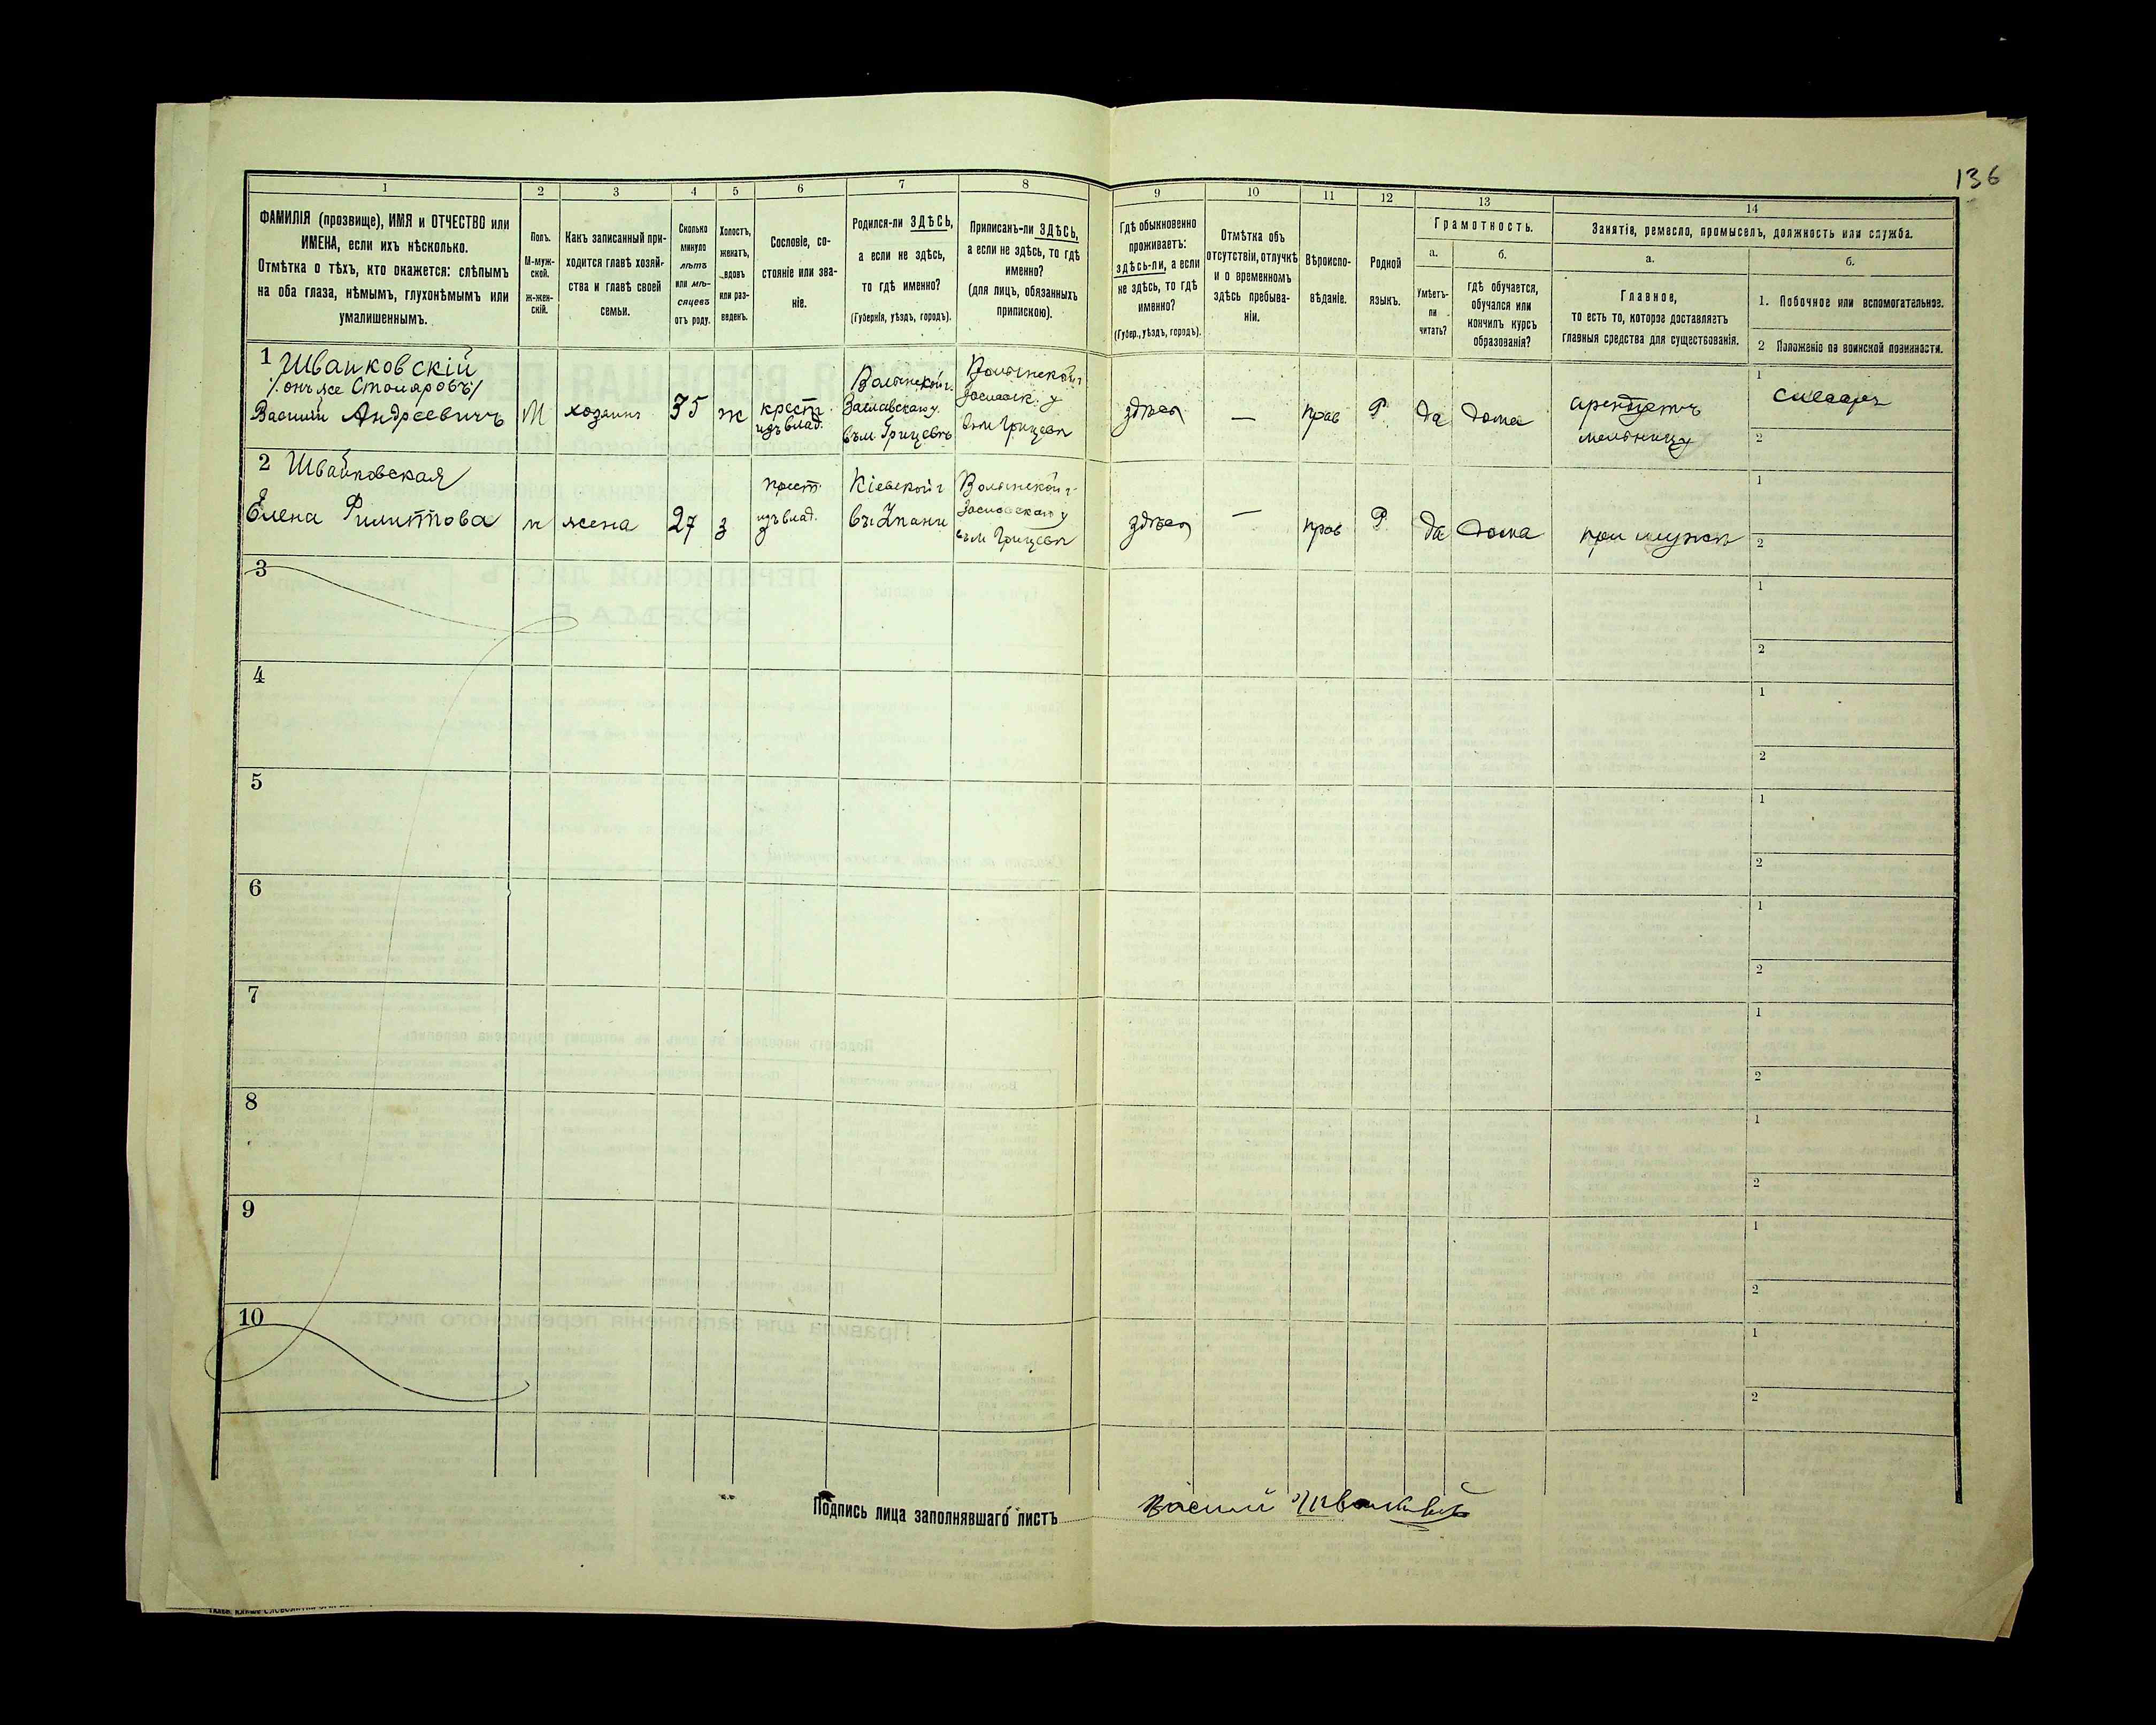 136
1
2
3
4
5
6
7
8
9
10
11
12
13
14
ФАМИЛІЯ (прозвище), ИМЯ и ОТЧЕСТВО или
ИМЕНА, если ихъ нѣсколько.
Отмѣтка о тѣхъ, кто окажется: слѣпымъ
на оба глаза, нѣмымъ, глухонѣмымъ или
умалишеннымъ.
Полъ.
М-муж-
ской.
ж-жен-
скій.
Какъ записанный при-
ходится главѣ хозяй-
ства и главѣ своей
семьи.
Сколько
минуло
лѣтъ
или мѣ-
сяцевъ
отъ роду.
Холостъ,
женатъ,
вдовъ
или раз-
веденъ.
Сословіе, со-
стояніе или зва-
ніе.
Родился-ли ЗДѢСЬ,
а если не здѣсь,
то гдѣ именно?
(Губернія, уѣздъ, городъ).
Приписанъ-ли ЗДѢСЬ,
а если не здѣсь, то гдѣ
именно?
(для лицъ, обязанныхъ
припискою).
Гдѣ обыкновенно
проживаетъ:
здѣсь-ли, а если
не здѣсь, то гдѣ
именно?
(Губер., уѣздъ, городъ).
Отмѣтка объ
отсутствіи, отлучкѣ
и о временномъ
здѣсь пребыва-
ніи.
Вѣроиспо-
вѣданіе.
Родной
языкъ.
Грамотность.
а.
Умѣетъ-
ли
читать?
б.
гдѣ обучается,
обучался или
кончилъ курсъ
образованія?
Занятія, ремесло, промыселъ, должность или служба.
а.
Главное,
то есть то, которое доставляетъ
главныя средства для существованія.
б.
1. Побочное или вспомогательное.
2 Положеніе по воинской повинности.
1 Шваиковскій
/онъ же Столяровъ/
Василій Андреевичъ
М
хозяинъ
35
ж
крест.
изъ влад.
Волынской г.
Заславскаго у.
въ м. Грицевѣ
Волынской г
Заславск. у
въ м Грицевѣ
здѣсь
—
прав
Р.
да
дома
арендуетъ
мельницу
1
слесарь
2
2 Швайковская
Елена Филиппова
ж
жена
27
з
крест.
изъ влад.
Кіевской г
Волынской г.
Заславскаго у
въ м Грицевѣ
здѣсь
—
прав
Р.
да
дома
при мужѣ
1
2
3
1
2
4
1
2
5
1
2
6
1
2
7
1
2
8
1
2
9
1
2
10
1
2
Подпись лица заполнявшаго листъ
Василій